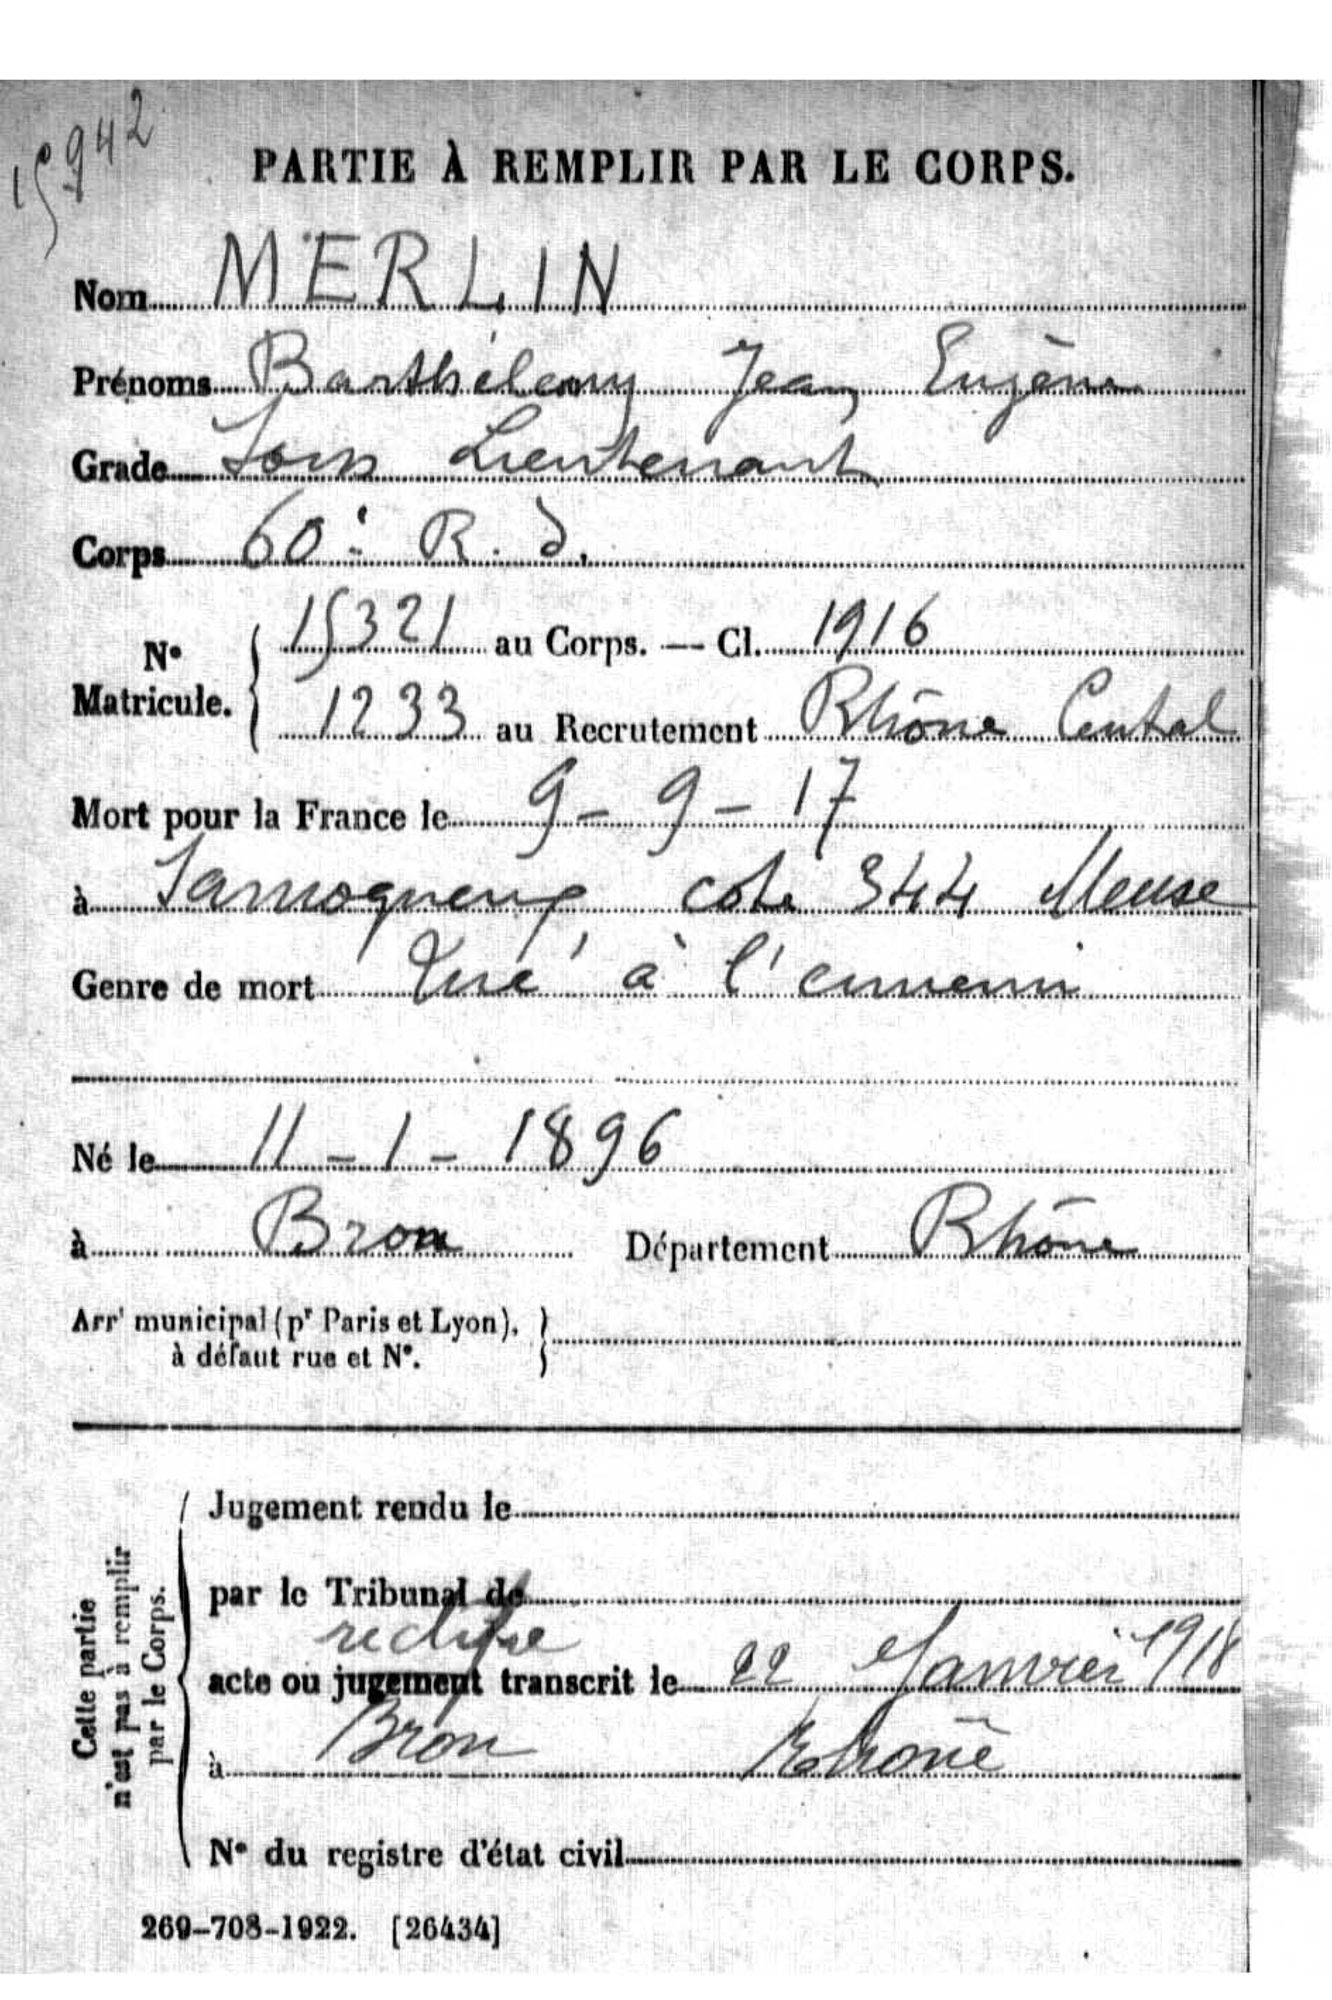 15942
PARTIE À REMPLIR PAR LE CORPS.
Nom MERLIN
Prénoms Barthélemy Jean Eugène
Grade Sous Lieutenant
Corps 60e R. I.
N° Matricule. 15321 au Corps. — Cl. 1916
1233 au Recrutement Rhône Central
Mort pour la France le 9 - 9 - 17
à Samogneux cote 344 Meuse
Genre de mort Tué à l'ennemi
Né le 11 - 1 - 1896
à Bron Département Rhône
Arrt municipal (pr Paris et Lyon),
à défaut rue et N°.
Cette partie
n'est pas à remplir
par le Corps.
Jugement rendu le
par le Tribunal de
rectifié
acte ou jugement transcrit le 22 Janvier 1918
à Bron Rhône
N° du registre d'état civil
269-708-1922. [26434]